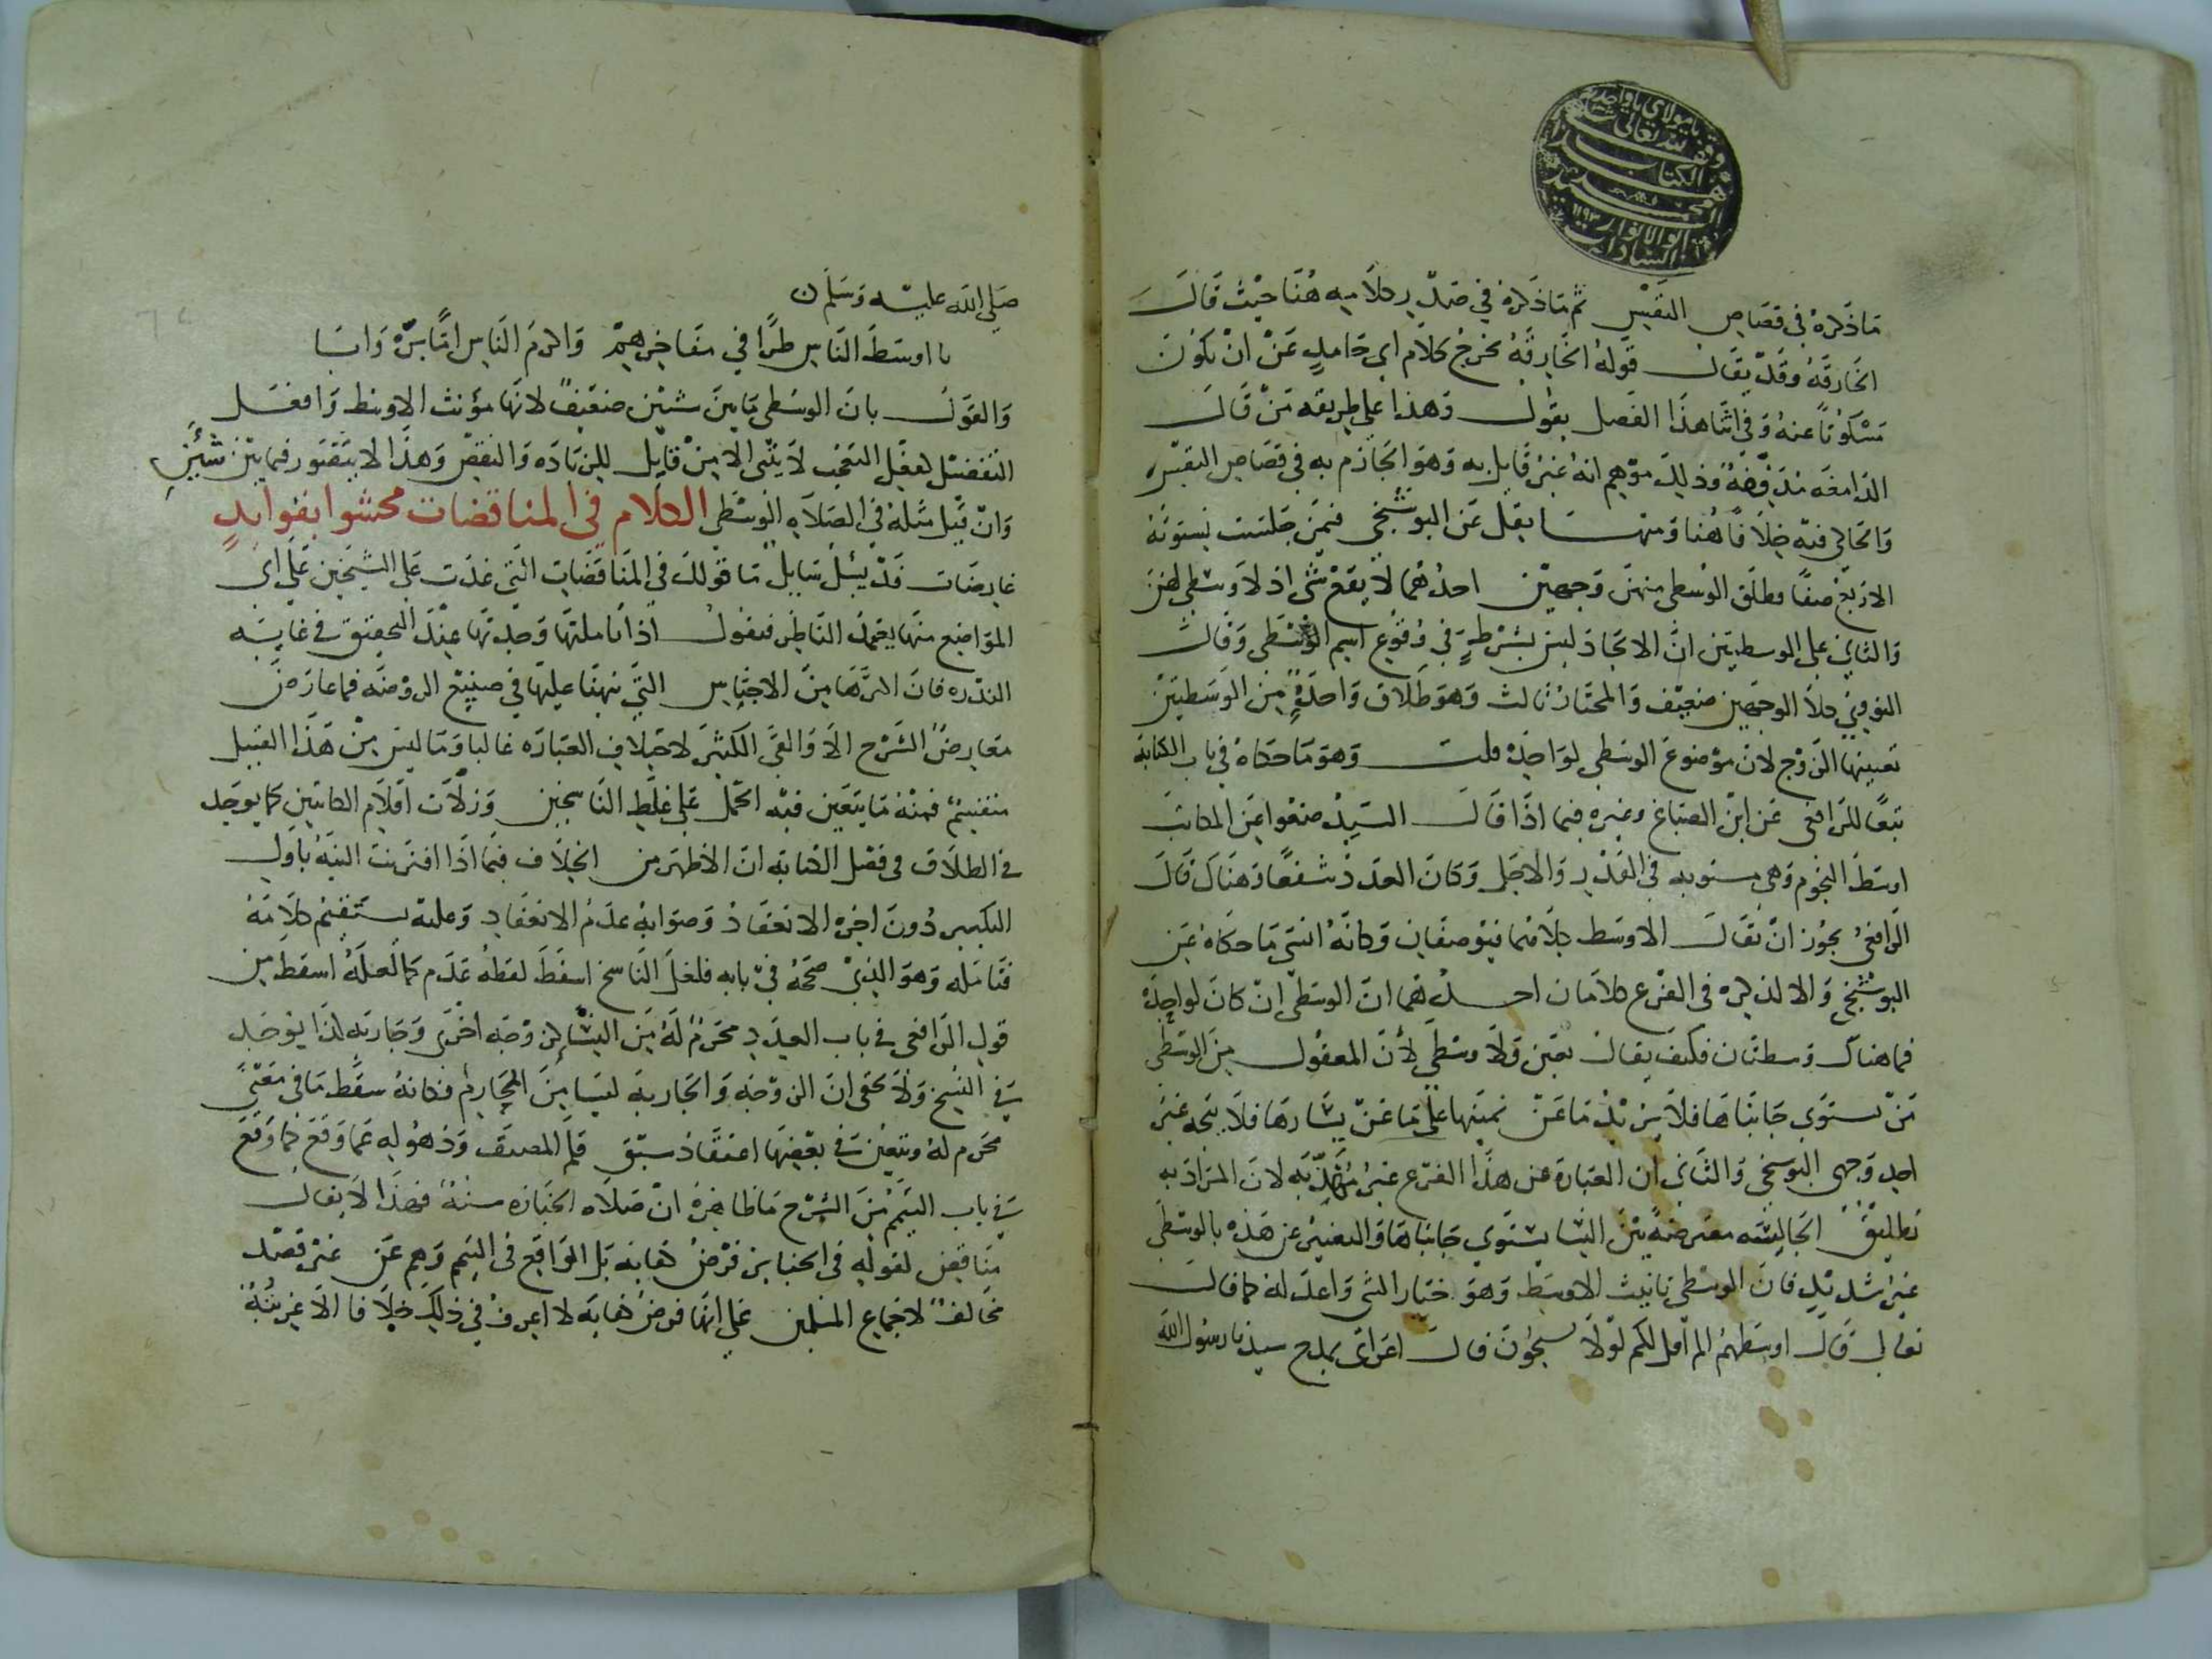 يا مولاي يا واحد
وقف لله تعالى
هذا الكتاب
السيد محمد
ابو الانوار ١١٩٣
السادات
ما ذكره في قصاص النفس ثم ما ذكره في صدر كلامه هنا حيث قال
الخارقة وقد يقال قوله الخارقة مخرج كلام اي حامل عن ان يكون
مسكوتا عنه وفي اثنا هذا الفصل يقول وهذا على طريقه من قال
الدامغه مذففه وذلك موهم انه غير قايل به وهو الجازم به في قصاص النفس
والحاكي فيه خلافا هنا ومنها نقل عن البوشنجي فيمن جلست نسوته
الاربع صفا وطلق الوسطى منهن وجهين احدهما لا يقع شي اذ لا وسطى لهن
والثاني على الوسطيين ان الاتحاد ليس بشرط في وقوع اسم الوسطى وقال
النووي كلا الوجهين ضعيف والمختار ثالث وهو طلاق واحدة من الوسطيين
تعيينها الزوج لان موضوع الوسطى لواحده قلت وهو ما حكاه في باب الكتابه
تبعا للرافعي عن ابن الصباغ وغيره فيما اذا قال السيد ضعوا عن المكاتب
اوسط النجوم وهي مستويه في القدر والاجل وكان العدد شفعا وهناك قال
الرافعي يجوز ان يقال الاوسط كلاهما فيوضعان وكانه انسي ما حكاه عن
البوشنجي والا لذكره في الفرع كلامان احدهما ان الوسطى ان كان لواحدة
فما هناك وسطتان فكيف يقال تعين ولا وسطى لان المعقول من الوسطى
من يستوي جانباها فلا يزيد ما عن يمينها على ما عن يسارها فلا يتجه غير
احد وجهي البوشنجي والثاني ان العبارة عن هذا الفرع غير مهذبه لان المراد به
تطليق الجالسه معترضة بين النسا يستوي جانباها والتعبير عن هذه بالوسطى
غير شديد فان الوسطى تانيث الاوسط وهو خيار الشي واعدله كما قال
تعالى قال اوسطهم الم اقل لكم لولا تسبحون قال اعرابي يمدح سيدنا رسول الله
صلى الله عليه وسلم
يا اوسط الناس طرا في مفاخرهم واكرم الناس اما برة وابا
والقول بان الوسطى ما بين شيئين ضعيف لانها مؤنث الاوسط وافعل
التفضيل لفعل التعجب لا يبنى الا من قابل للزياده والنقص وهذا لا يتصور فيما بين شيئين
وان قيل مثله في الصلاه الوسطى الكلام في المناقضات محشوا بفوايد
عارضات قد يسئل سايل ما قولك في المناقضات التي عدت على الشيخين على اي
المواضع منها يحمل الناظر فيقول اذا تاملتها وجدتها عند التحقيق في غايته
الندره فان اكثرها من الاجتناس التي نبهنا عليها في صنيع الروضه فما عارض
معارض الشرح الا والقى الكثير لاختلاف العباره غالبا وما ليس من هذا القبيل
منقسم فمنه ما يتعين فيه الحمل على غلط الناسخين وزلات اقلام الكاتبين كما يوجد
في الطلاق في فصل الكنايه ان الاظهر من الخلاف فيما اذا اقترنت النيه باول
التكبير دون اخره الانعقاد وصوابه عدم الانعقاد وعليه يستقيم كلامه
فتامله وهو الذي صححه في بابه فلعل الناسخ اسقط لفظه عدم كما لعله اسقط من
قول الرافعي في باب العدد محرم له من النسا او زوجه اخرى وجاريه كذا يوجد
في النسخ ولا يخفى ان الزوجه والجاريه ليسا من المحارم فكانه سقط ما في معنى
محرم له ويتعين في بعضها اعتقاد سبق قلم المصنف وذهوله عما وقع كما وقع
في باب التيمم من الشرح ما ظاهره ان صلاه الجنازه سنة فهذا لا يقال
مناقض لقوله في الجنايز فرض كفايه بل الواقع في التيمم وهم عن غير قصد
مخالف لاجماع المسلمين على انها فرض كفايه لا اعرف في ذلك خلافا الا غريبة